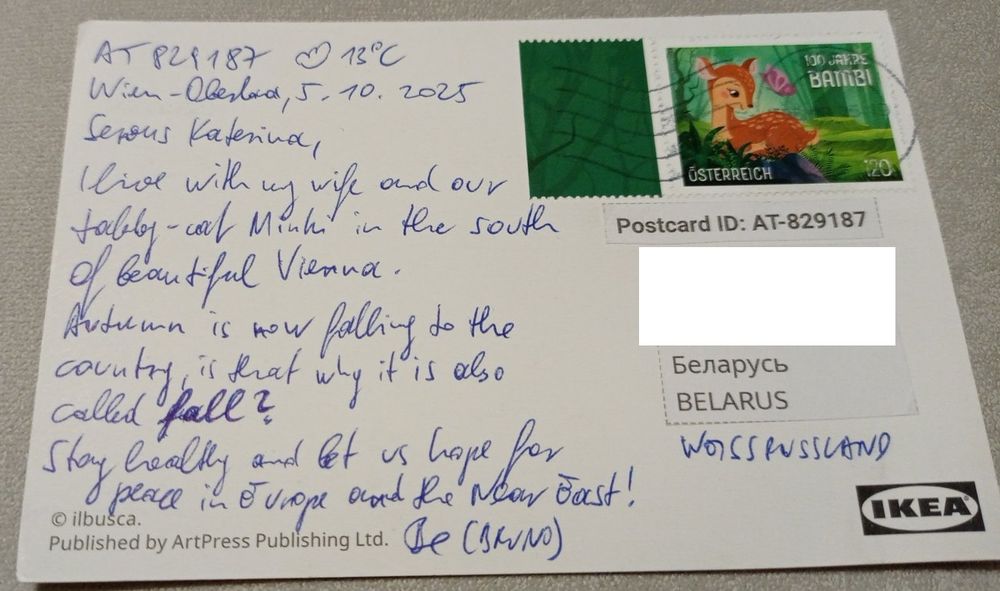 AT 829187 13°C
Wien-Oberlaa, 5. 10. 2025
Servus Katerina,
I live with my wife and our
tabby-cat Minki in the south
of beautiful Vienna.
Autumn is now falling to the
country, is that why it is also
called fall?
Stay healthy and let us hope for
peace in Europe and the Near East!
(BRUNO)
© ilbusca.
Published by ArtPress Publishing Ltd.
100 JAHRE
BAMBI
ÖSTERREICH 120
Postcard ID: AT-829187
Беларусь
BELARUS
WEISSRUSSLAND
IKEA